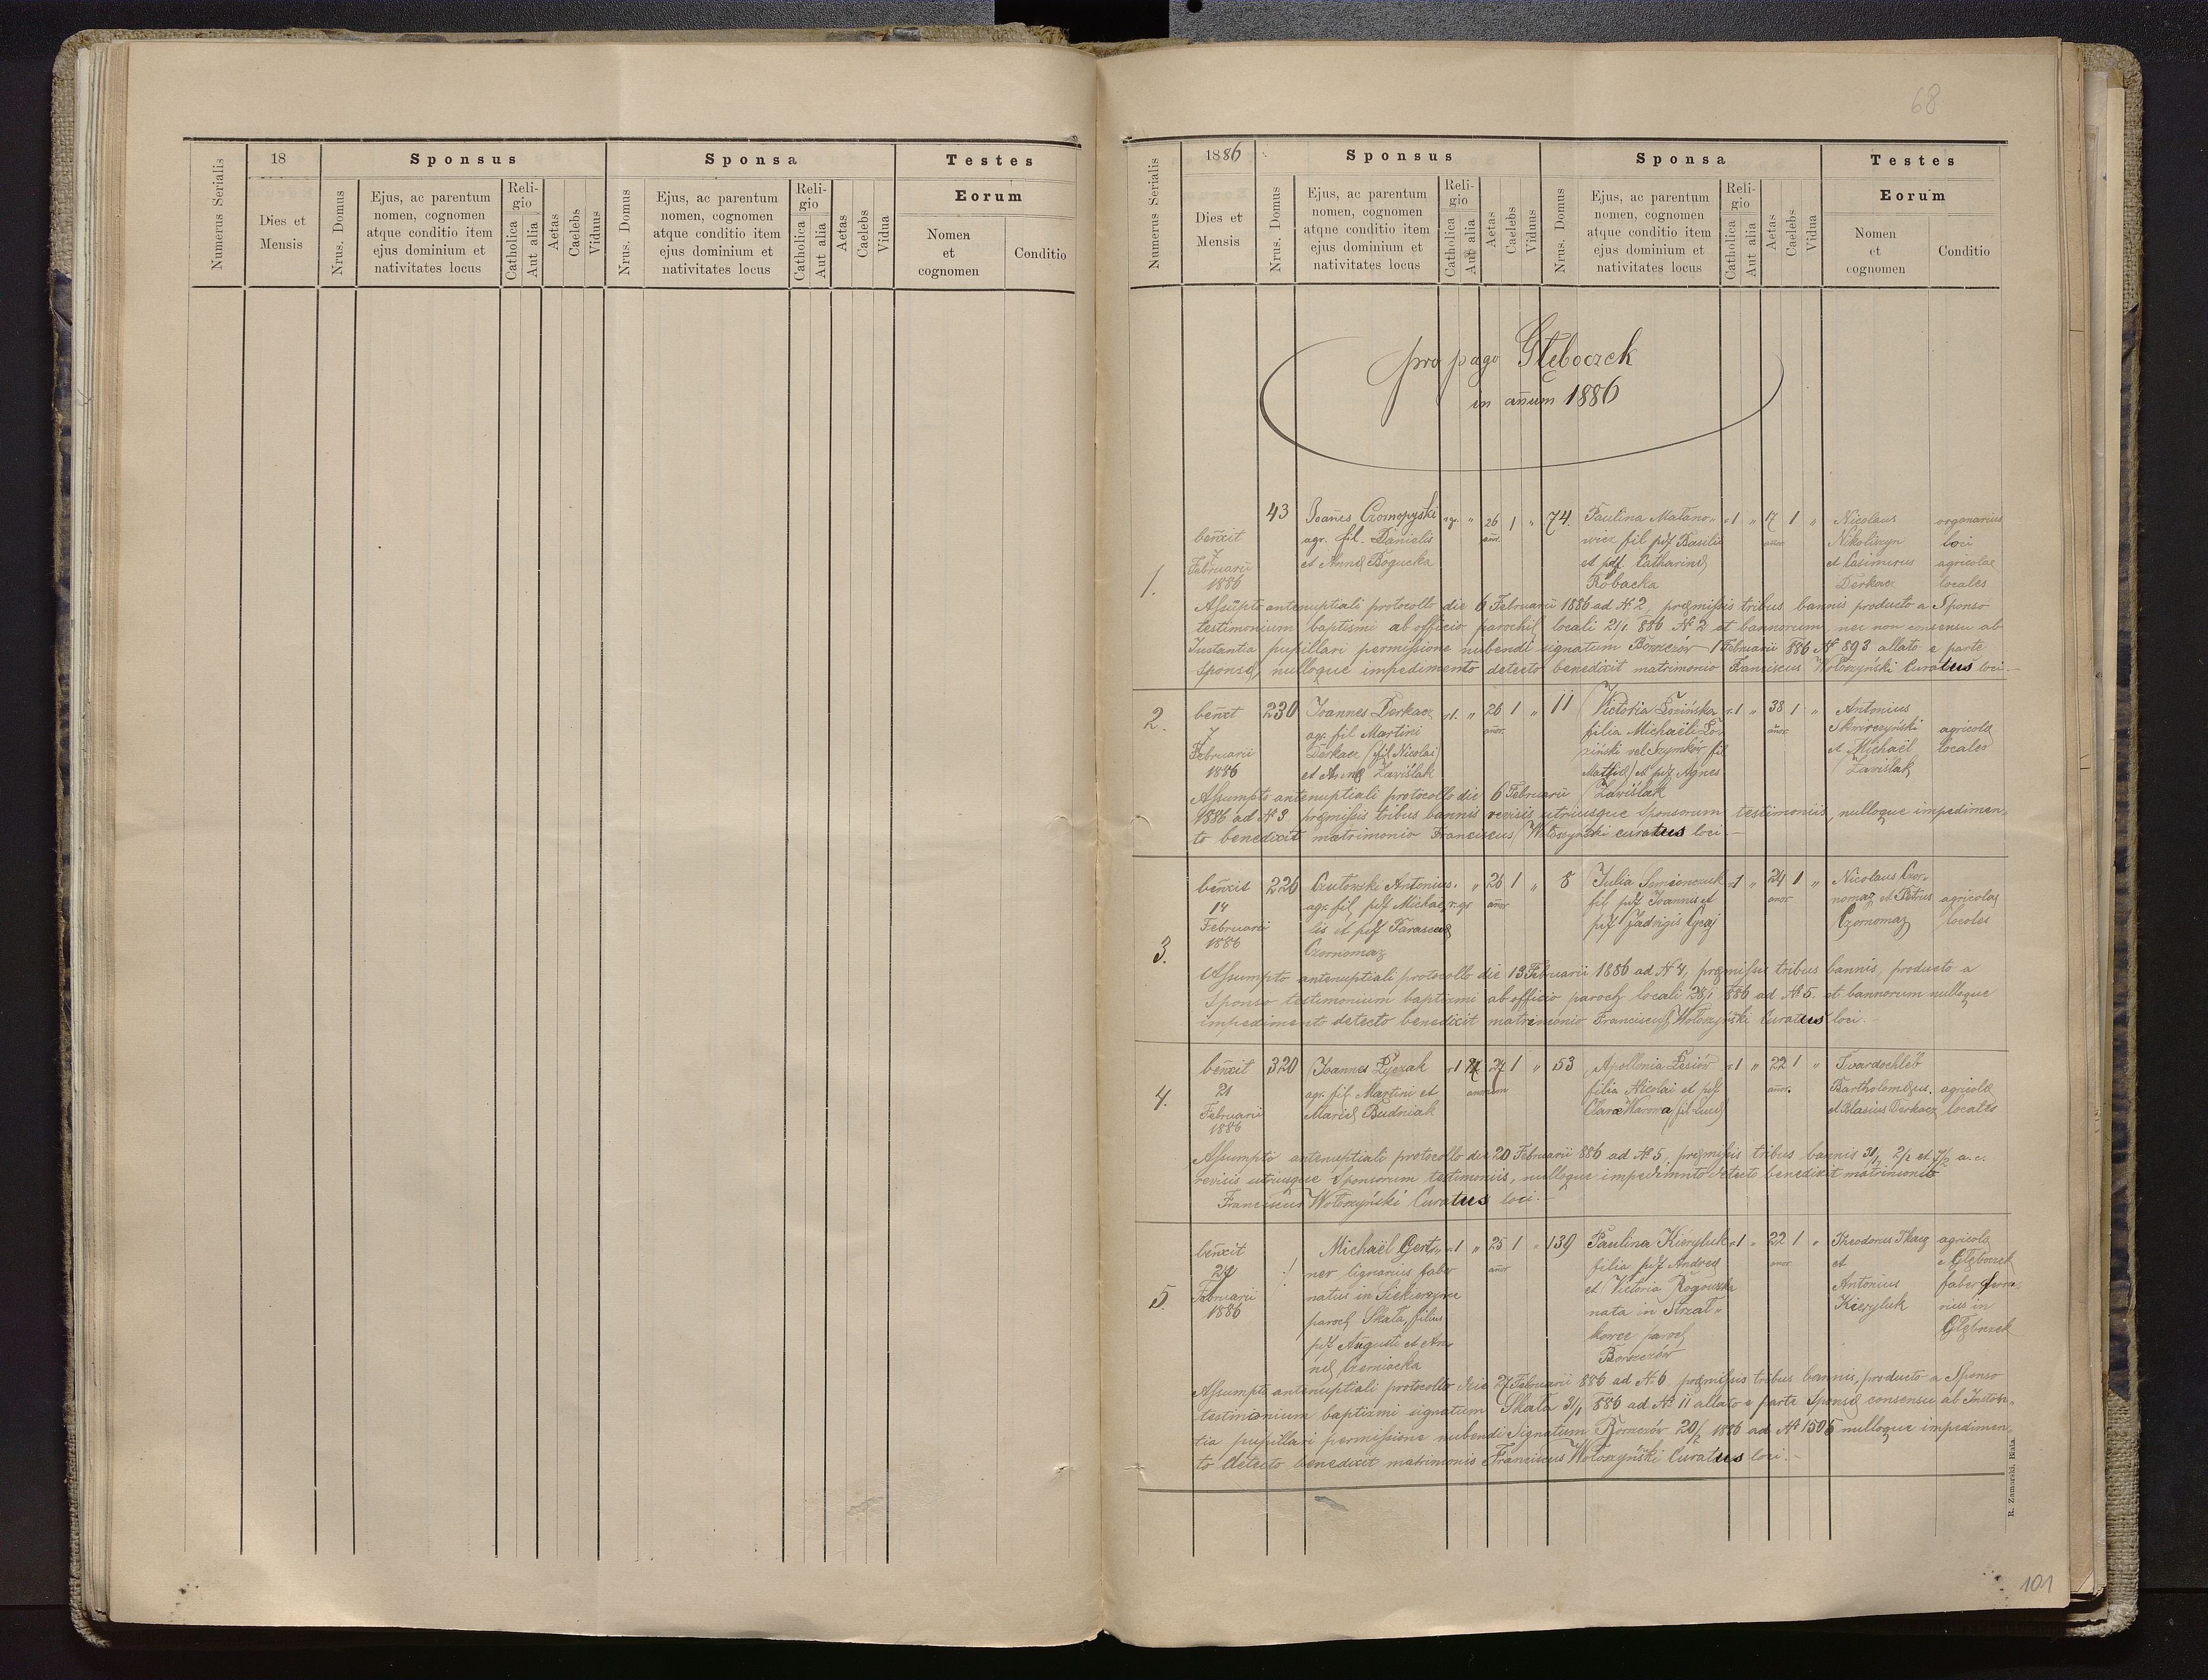 Numerus Serialis
18
Dies et
Mensis
Sponsus
Nrus. Domus
Ejus, ac parentum
nomen, cognomen
atque conditio item
ejus dominium et
nativitates locus
Reli-
gio
Catholica
Aut alia
Aetas
Caelebs
Viduus
Sponsa
Nrus. Domus
Ejus, ac parentum
nomen, cognomen
atque conditio item
ejus dominium et
nativitates locus
Reli-
gio
Catholica
Aut alia
Aetas
Caelebs
Vidua
Testes
Eorum
Nomen
et
cognomen
Conditio
68
Numerus Serialis
1886
Dies et
Mensis
Sponsus
Nrus. Domus
Ejus, ac parentum
nomen, cognomen
atque conditio item
ejus dominium et
nativitates locus
Reli-
gio
Catholica
Aut alia
Aetas
Caelebs
Viduus
Sponsa
Nrus. Domus
Ejus, ac parentum
nomen, cognomen
atque conditio item
ejus dominium et
nativitates locus
Reli-
gio
Catholica
Aut alia
Aetas
Caelebs
Vidua
Testes
Eorum
Nomen
et
cognomen
Conditio
pro pago Głęboczek
in anum 1886
1.
beñxit
7
Februarii
1886
43
Joañes Czornopyski
agr. fil. Danielis
et Annę Bogucka
r.gr. " 26 1 "
añor.
74.
Paulina Matano-
wicz fil pdf Basilii
et pdf. Catharinę
Robacka
r.1 " 17 1 "
añor.
Nicolaus
Nikoliszyn
et Casimirus
Derkacz
organarius
loci
agricolae
locales
Assūpto antenuptiali protocollo die 6 Februarii 1886 ad № 2, pręmissis tribus bannis producto a Sponso
testimonium baptismi ab officio parochię locali 21/1 886 № 2 et bannorum nec non consensu ab
Instantia pupillari permissione nubendi signatum Borszczów 1 Februarii 886 № 893 allato e parte
Sponsę, nulloque impedimento detecto benedixit matrimonio Franciscus Wołoszyński Curatus loci.—
2.
beñxt
7
Februarii
1886
230
Joannes Derkacz
agr. fil Martini
Derkacz (fil Nicolai)
et Annę Zawiślak
r.1. " 26 1 "
añor.
11
Victoria Łozińska
filia Michaëli Ło-
ziński vel Szymków fil
Mathię) et pdf Agnes
Zawiślak
r.1 " 38 1 "
añor.
Antonius
Skwirczyński
et Michaël
Zawiślak
agricolę
locales
Assumpto antenuptiali protocollo die 6 Februarii
1886 ad № 3. pręmissis tribus bannis revisis utriusque Sponsorum testimoniis, nulloque impedimen-
to benedixit matrimonio Franciscus Wołoszyński curatus loci.—
3.
beñxit
14
Februarii
1886
226
Czutowski Antonius
agr. fil pdf Michaë-
lis et pdf Parascevę
Czornomaz
r.gr " 26 1 "
añor.
8
Julia Semienczuk
fil pdf Joannis et
pdf Jadvigis Gzaj
r.1 " 24 1 "
añor.
Nicolaus Czor-
nomaz et Petrus
Czornomaz
agricolę
locales
Assumpto antenuptiali protocollo die 13 Februarii 1886 ad № 4, pręmissis tribus bannis, producto a
Sponso testimonium baptismi ab officio paroch locali 28/1 886 ad № 5. et bannorum nulloque
impedimento detecto benedixit matrimonio Franciscus Wołoszyński Curatus loci.—
4.
beñxit
21
Februarii
1886
320
Joannes Łyczak
agr. fil Martini et
Marię Budniak
r.1 24 1 "
annorum
53
Apollonia Lesiów
filia Nicolai et pdf
Claræ Warowa (fil Lucę)
r.1 " 22 1 "
añor.
Twardochleb
Bartholomęus.
et Blasius Derkacz
agricolę
locales
Assumpto antenuptiali protocollo die 20 Februarii 886 ad № 5, pręmissis tribus bannis 31/1, 2/2 et 7/2 a. c.
revisis utriusque Sponsorum testimoniis, nulloque impedimnto detecto benedixit matrimonio
Franciscus Wołoszyński Curatus loci.—
5.
beñxit
27
Februarii
1886
Michaël Gert-
ner lignarius faber
natus in Siekierzyńce
paroch Skała, filius
pdf Augusti et An-
nę Czerniacka
r.1 " 25 1 "
añor.
139
Paulina Kieryluk
filia pdf Andreę
et Victoria Rogowska
nata in Strzał-
kowce paroch
Borszczów
r.1 " 22 1 "
añor.
Theodorus Tkacz
et
Antonius
Kieryluk
agricolę
e Głęboczek
faber ferra-
rius in
Głęboczek
Assumpto antenuptiali protocollo die 27 Februarii 886 ad № 6 pręmissis tribus bannis, producto a Sponso
testimonium baptizmi signatum Skała 31/1 886 ad № 11 allato e parte Sponsę consensu ab Instan-
tia pupillari permissione nubendi Signatum Borszczów 20/2 1886 ad № 1506 nulloque impedimen-
to detecto benedixit matrimonio Franciscus Wołoszyński Curatus loci.—
R. Zamarski, Biała.
101